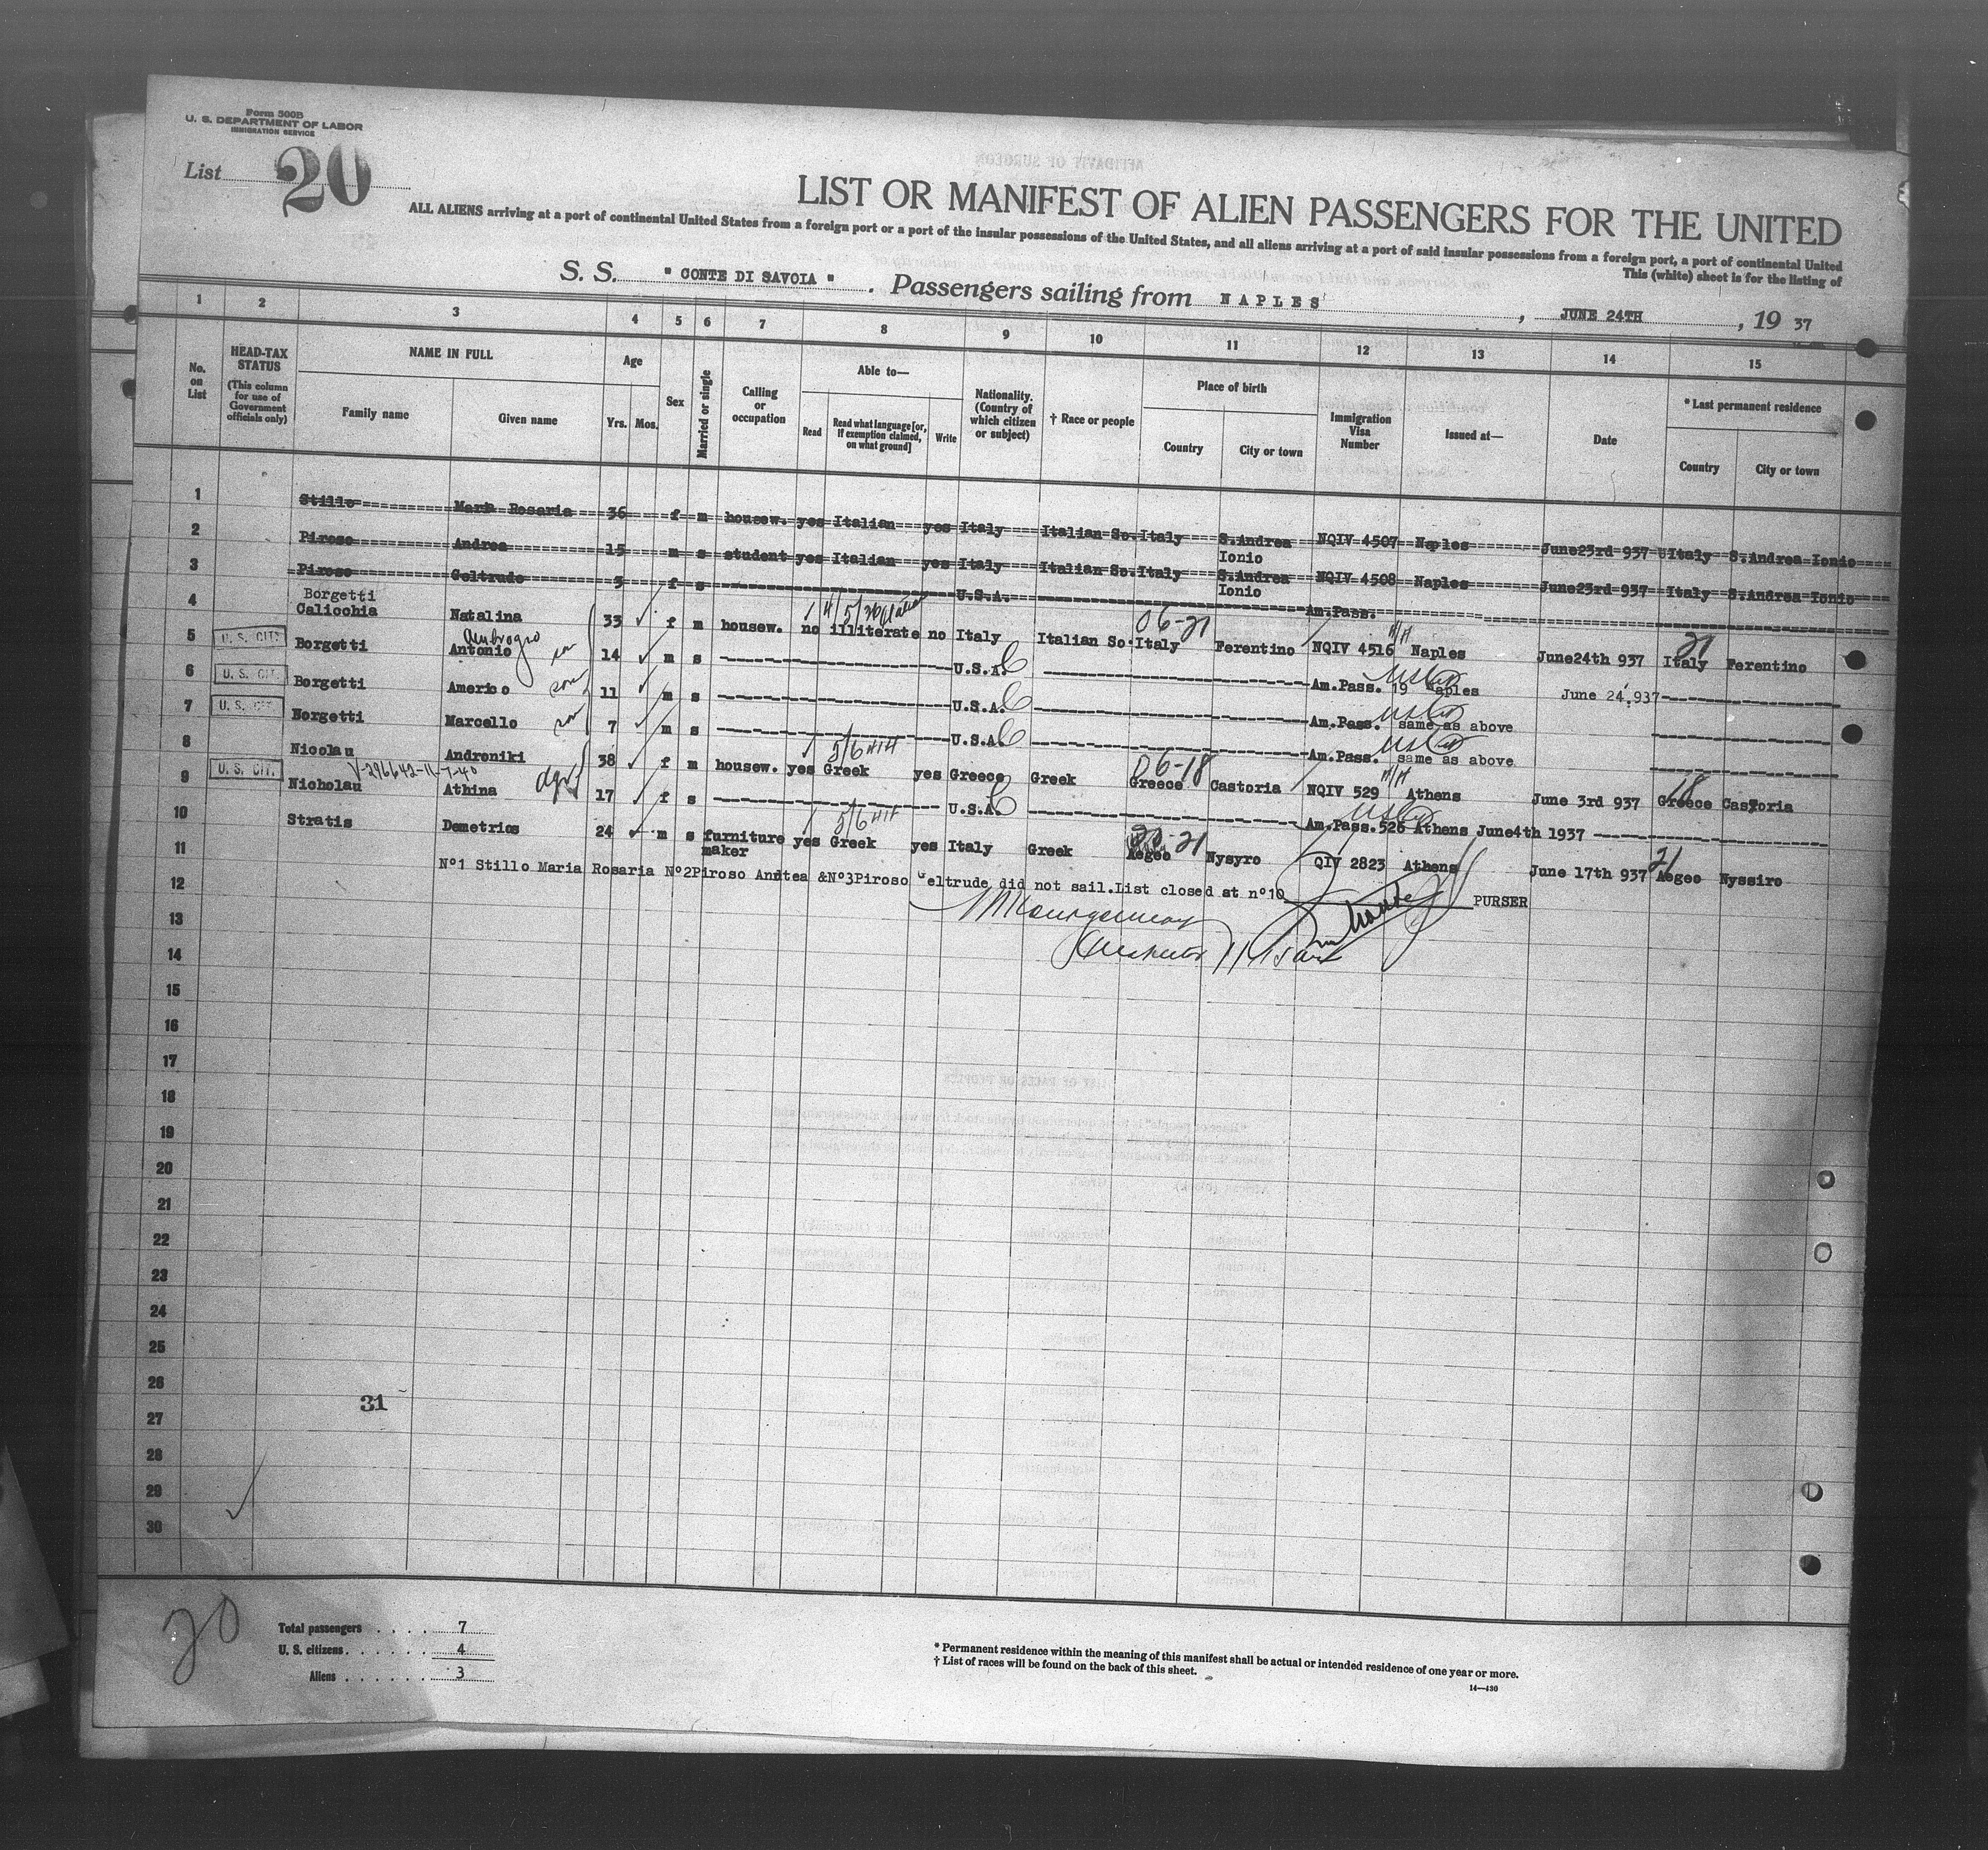 Form 500B
U. S. DEPARTMENT OF LABOR
IMMIGRATION SERVICE
List 20
LIST OR MANIFEST OF ALIEN PASSENGERS FOR THE UNITED
ALL ALIENS arriving at a port of continental United States from a foreign port or a port of the insular possessions of the United States, and all aliens arriving at a port of said insular possessions from a foreign port, a port of continental United
This (white) sheet is for the listing of
S. S. " CONTE DI SAVOIA " . Passengers sailing from NAPLES , JUNE 24TH , 19 37
1 2 3 4 5 6 7 8 9 10 11 12 13 14 15
No. on List
HEAD-TAX STATUS
(This column for use of Government officials only)
NAME IN FULL
Family name
Given name
Age
Yrs. Mos.
Sex
Married or single
Calling or occupation
Able to—
Read
Read what language [or, if exemption claimed, on what ground]
Write
Nationality. (Country of which citizen or subject)
† Race or people
Place of birth
Country
City or town
Immigration Visa Number
Issued at—
Date
* Last permanent residence
Country
City or town
1 Stillo Maria Rosaria 36 f m housew. yes Italian yes Italy Italian So. Italy S.Andrea Ionio NQIV 4507 Naples June23rd 937 Italy S.Andrea Ionio
2 Piroso Andrea 15 m s student yes Italian yes Italy Italian So. Italy S.Andrea Ionio NQIV 4508 Naples June23rd 937 Italy S.Andrea Ionio
3 Piroso Geltrude 5 f s U.S.A. Am.Pass.
Borgetti
4 Calicchia Natalina 33 f m housew. no illiterate no Italy Italian So. Italy Ferentino NQIV 4516 Naples June24th 937 Italy Ferentino
06-21
21
Ambrogio
5 U. S. CIT. Borgetti Antonio son 14 m s U.S.A. Am.Pass. 19 Naples June 24.937
6 U. S. CIT. Borgetti Americo son 11 m s U.S.A. Am.Pass. same as above
7 U. S. CIT. Borgetti Marcello son 7 m s U.S.A. Am.Pass. same as above
8 Nicolau Androniki 38 f m housew. yes Greek yes Greece Greek Greece Castoria NQIV 529 Athens June 3rd 937 Greece Castoria
06-18
18
V-296642-11-7-40
9 U. S. CIT. Nicholau Athina 17 f s U.S.A. Am.Pass.526 Athens June4th 1937
10 Stratis Demetrios 24 m s furniture maker yes Greek yes Italy Greek Aegeo Nysyro QIV 2823 Athens June 17th 937 Aegeo Nyssiro
21
11 N°1 Stillo Maria Rosaria N°2Piroso Andtea &N°3Piroso Geltrude did not sail.List closed at n°10 PURSER
12
13
14
15
16
17
18
19
20
21
22
23
24
25
26
31
27
28
29
30
20
Total passengers . . . . 7
U. S. citizens . . . . . . 4
Aliens . . . . . . 3
* Permanent residence within the meaning of this manifest shall be actual or intended residence of one year or more.
† List of races will be found on the back of this sheet.
14—430